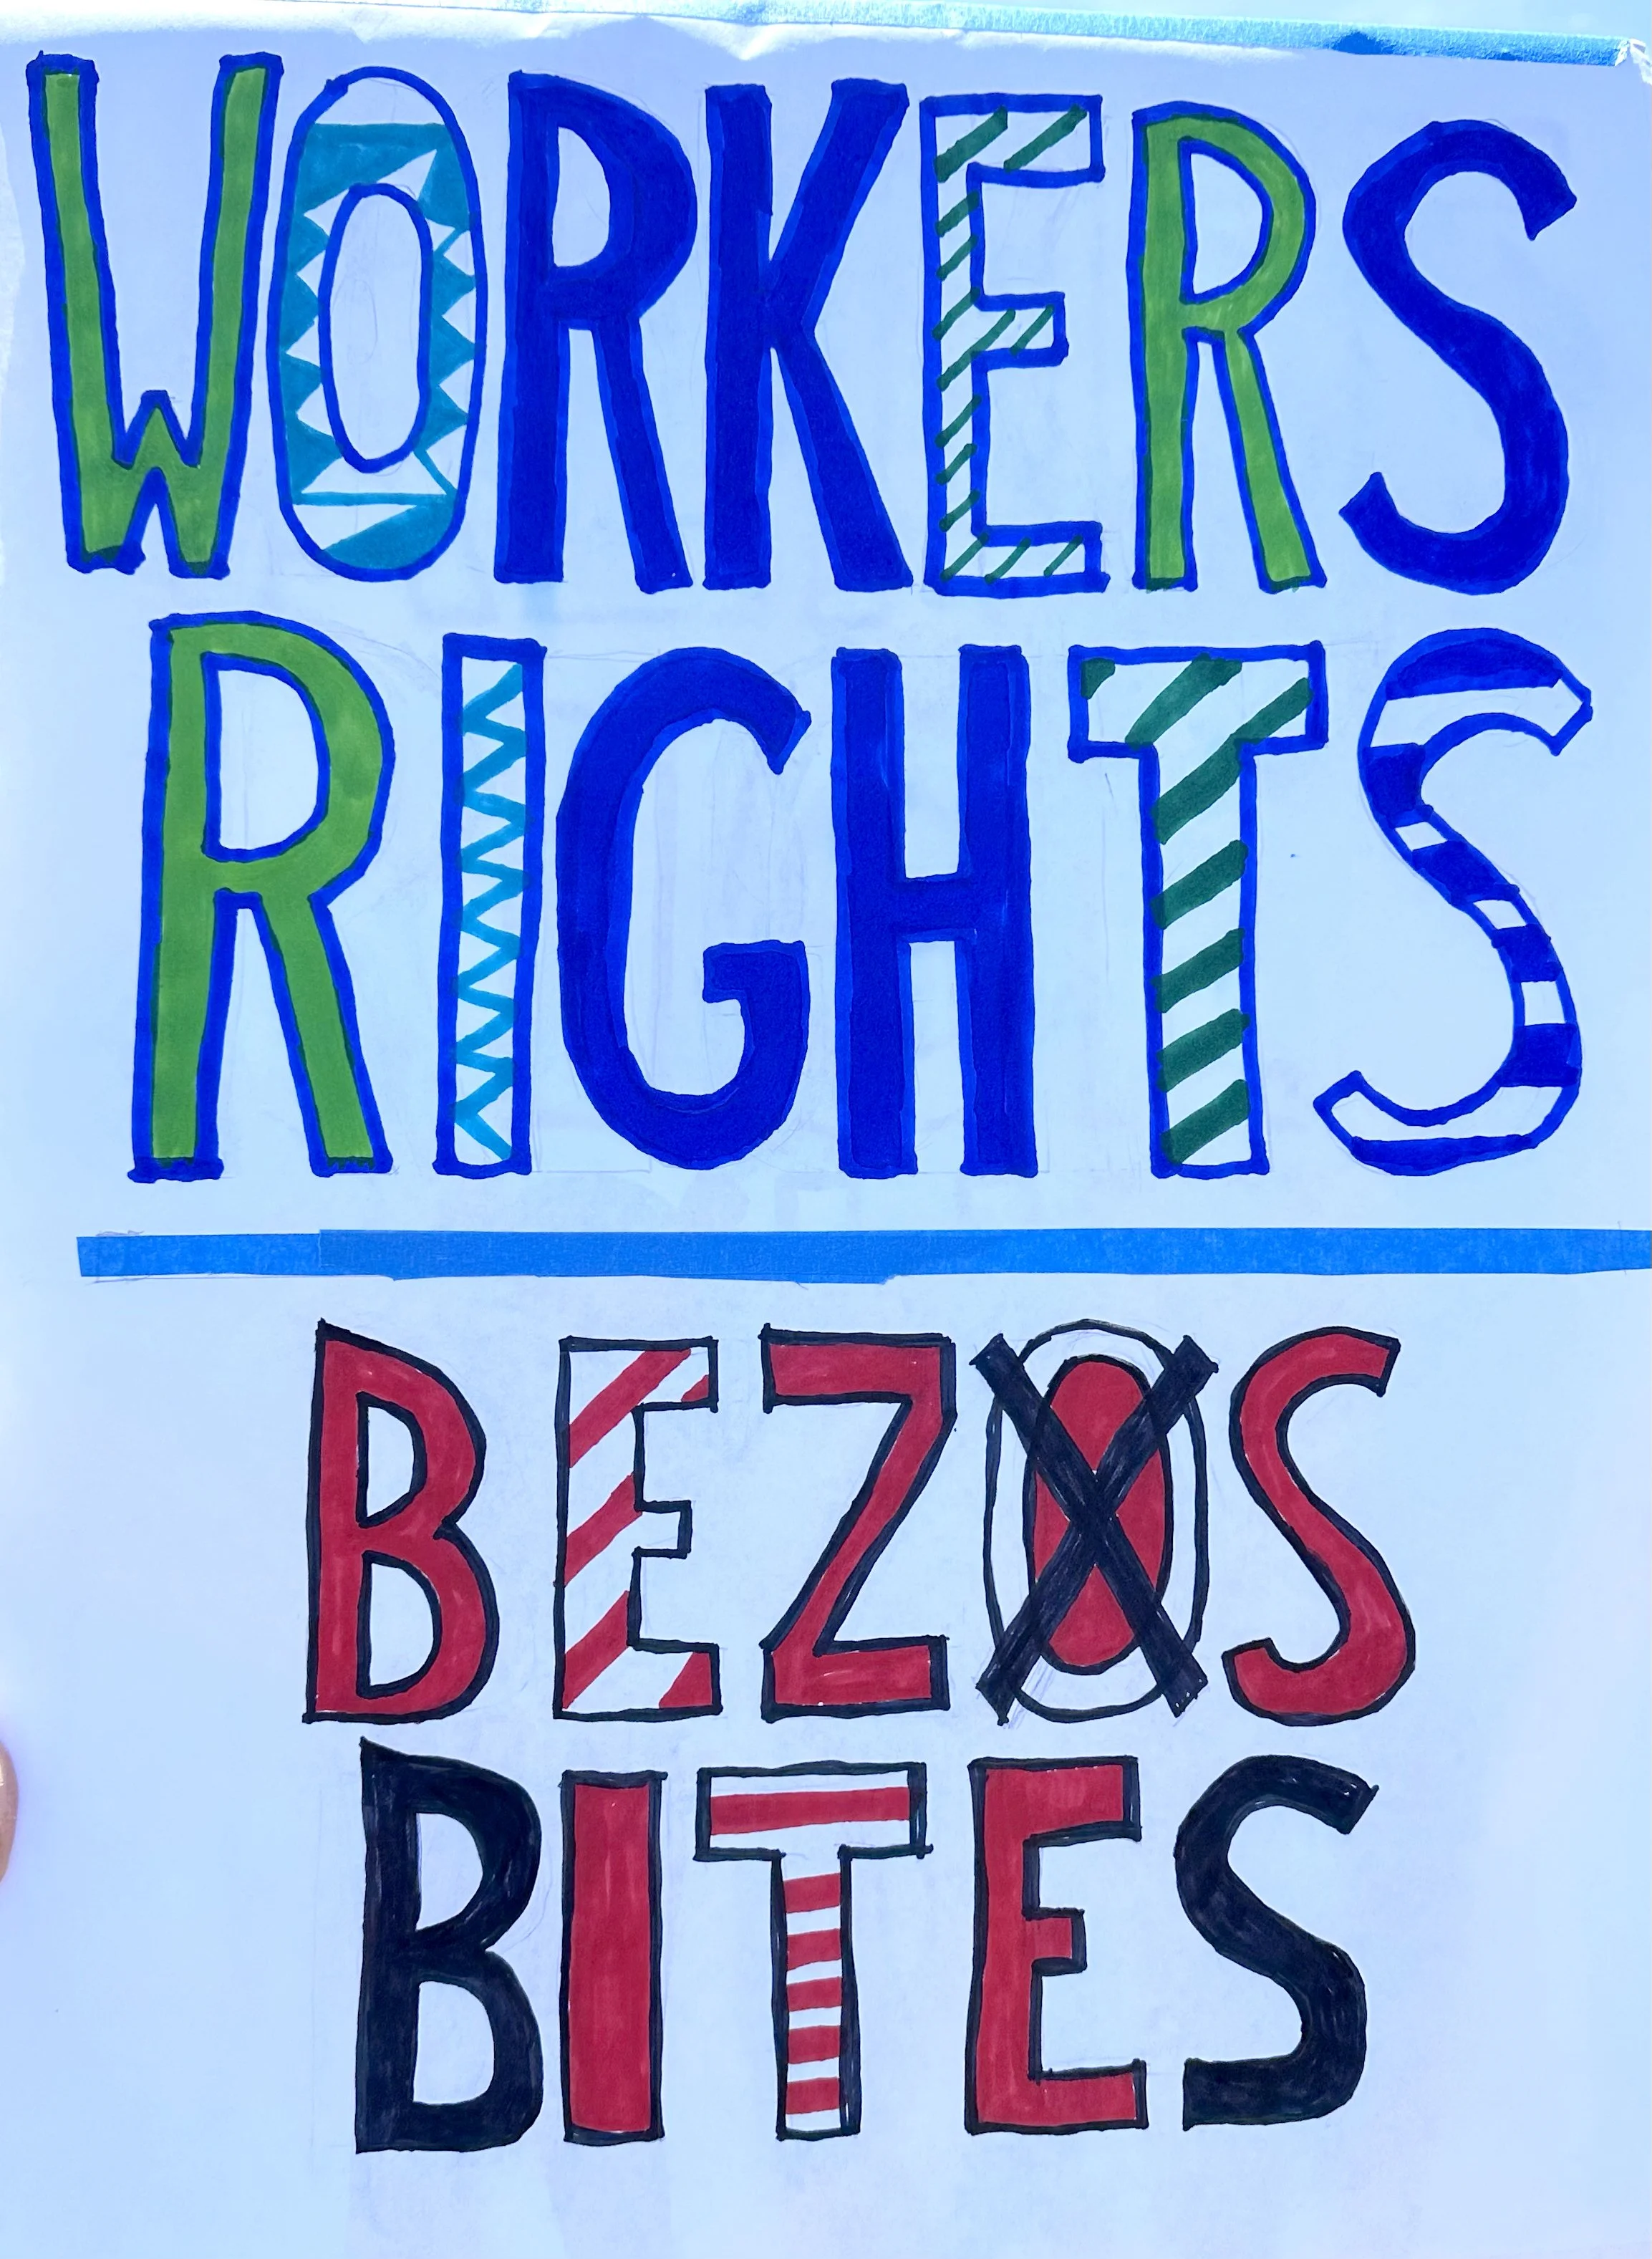 WORKERS
RIGHTS
BEZOS
BITES